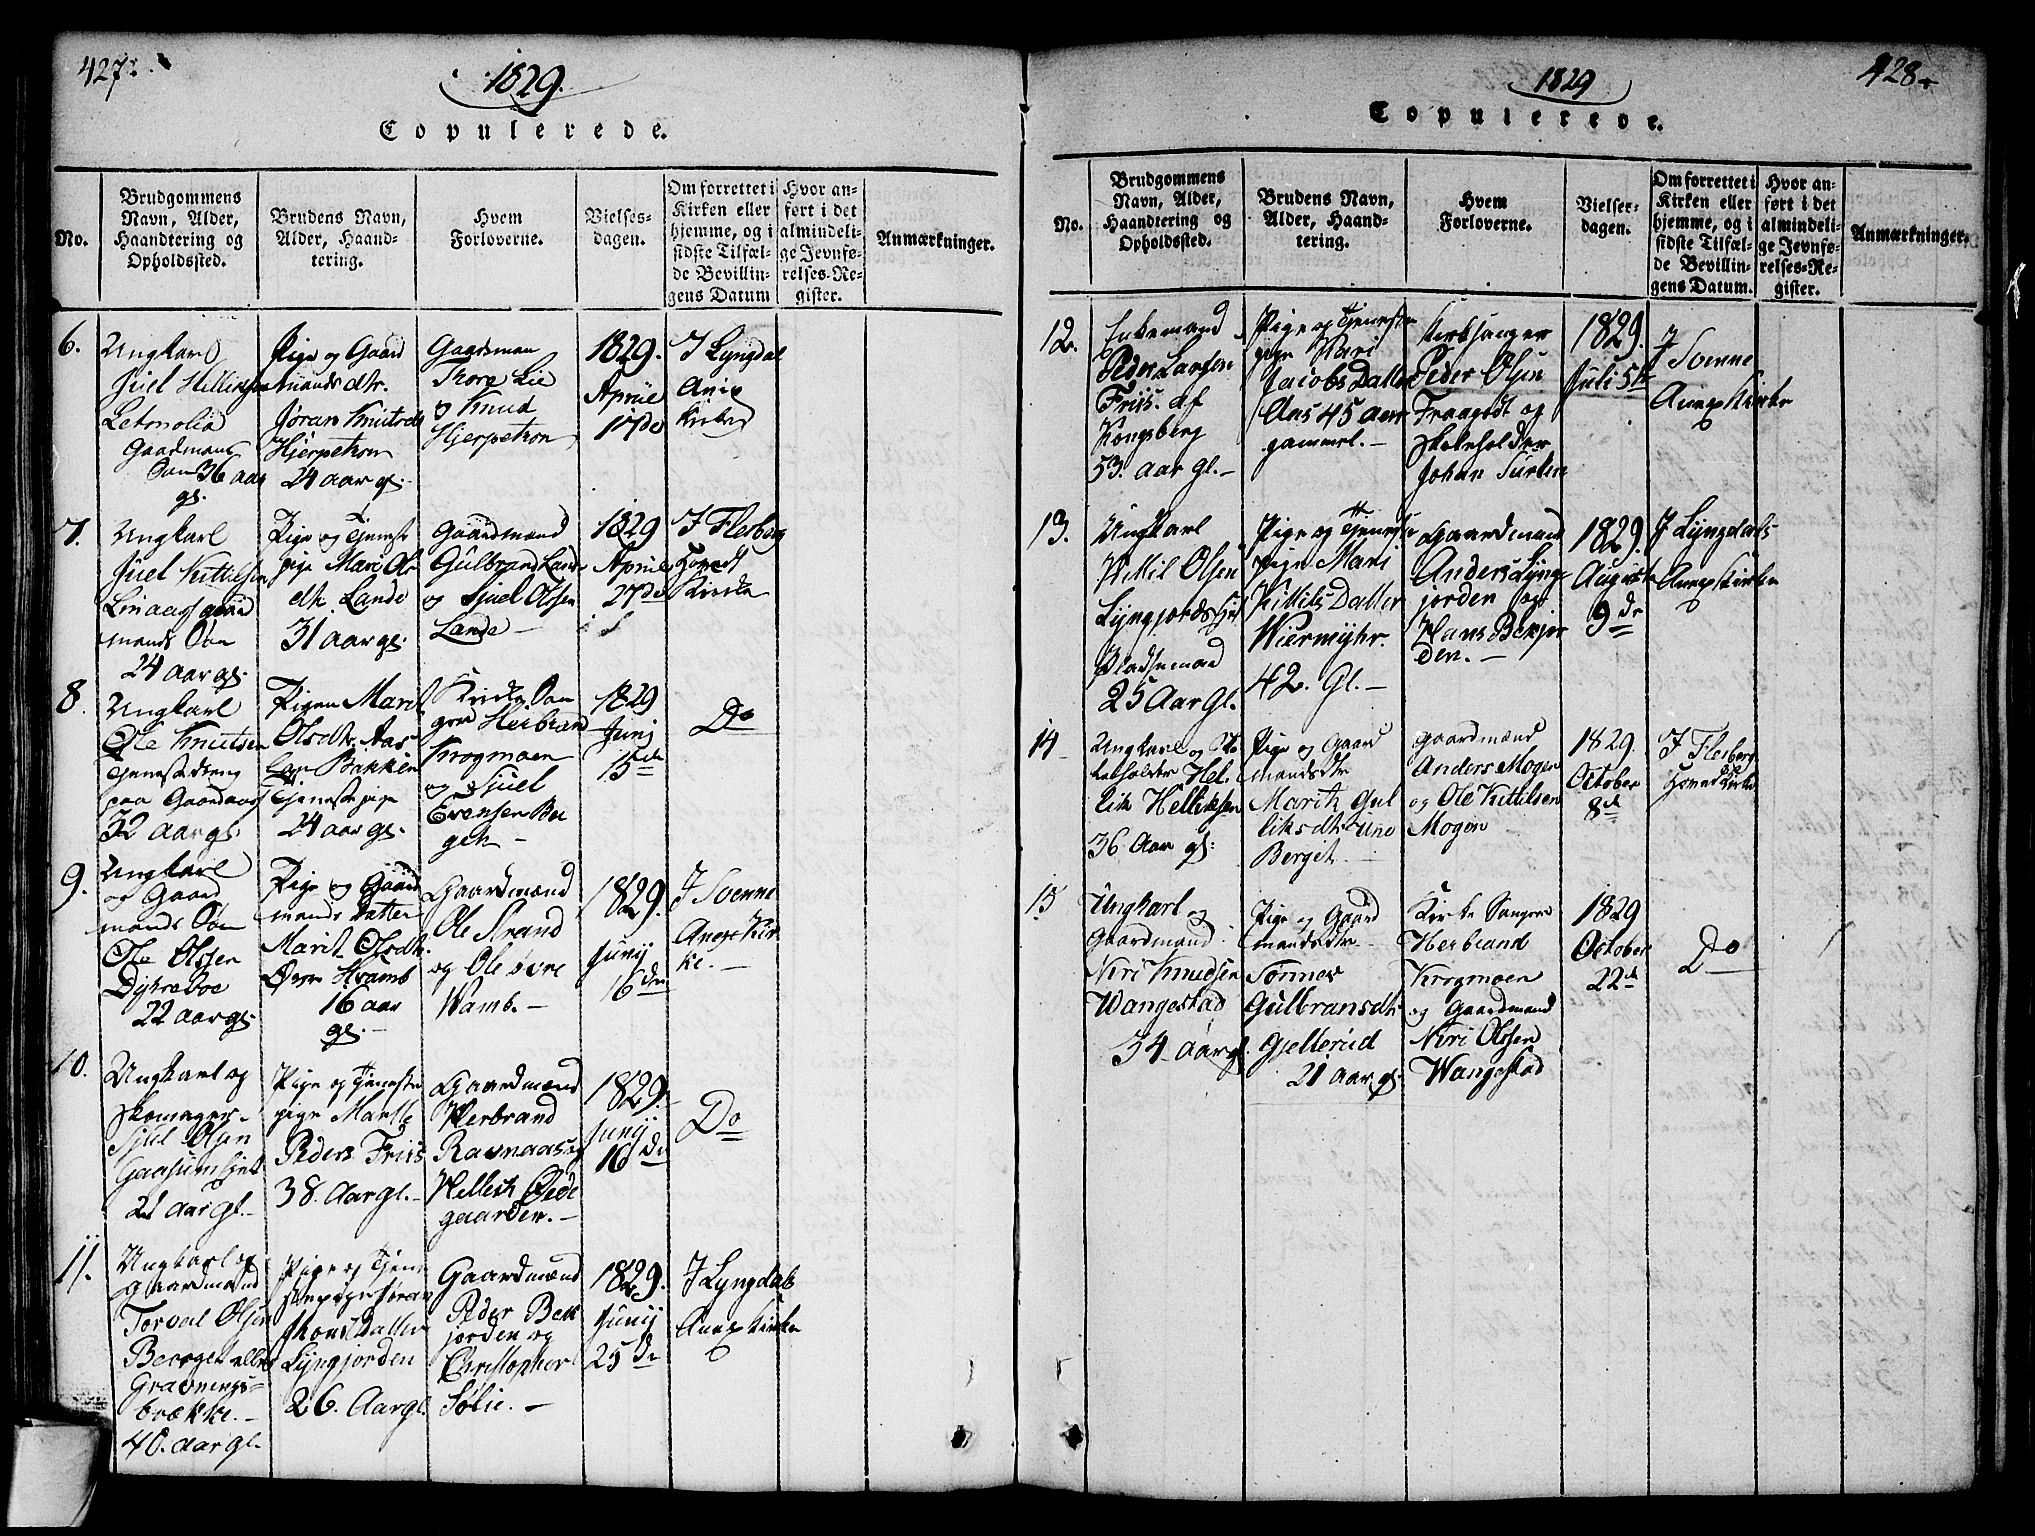 427.
1829.
Copulerede.
No.
Brudgommens
Navn, Alder,
Haandtering og
Opholdssted.
Brudens Navn,
Alder, Haand-
tering.
Hvem
Forloverne.
Vielses-
dagen.
Om forrettet i
Kirken eller
hjemme, og i
sidste Tilfæl-
de Bevillin-
gens Datum
Hvor an-
ført i det
almindeli-
ge Jevnfø-
relses-Re-
gister.
Anmærkninger.
6.
Ungkarl
Juel
Gaardmans
Søn 36 aar
gl.
Pige og Gaard
mands dtr.
Jøran Knutsdt
Hierpetron
24 aar gl.
Gaardsman
Thore Lie
og Knud
Hierpetron
1829.
Aprile
17de
I Lyngdal
Anex
Kirke
7.
Ungkarl
Juel Kittilsen
Linaas gaard
mands Søn
24 aar gl.
Pige og Tieneste
pige Mari Ols
dtr. Lande
31 aar gl.
Gaardmænd
Gulbrand Lande
og Sjuel Olsen
Lande
1829
Aprile
27de
I Flesberg
Hoved
Kirke
8.
Ungkarl
Ole Knutsen
Tjenestedreng
paa Gaardaas
32 aar gl.
Pigen Marit
Olsdtr. Aas
Bakken
Tjeneste pige
24 aar gl.
Kirke San
ger Herbrand
Krogmoen
og Sjuel
Evensen Ber
geth
1829
Junj
15de
Do
9.
Ungkarl
og Gaard
mands Søn
Ole Olssen
Dykreboe
22 aar gl.
Pige og Gaard
mands Datter
Marit Olsdtr
Øvre Hvamb
16 aar
gl.
Gaardmænd
Ole Strand
og Ole øvre
Wamb.
1829.
Junij
16de
I Svenne
Anex Kir
ke.
10.
Ungkarl og
Skomager
Sjul Olsen
21 aar gl.
Pige og Tjeneste
pige Marthe
Peders Friis
38. Aar gl.
Gaardmænd
Herbrand
Ravnaas og
Hellech Øde
gaarden.
1829.
Junij
16 de
Do
11.
Ungkarl og
Gaardmand
Torval Olsen
Bevergen eller
Gravnings-
brække.
40. aar gl.
Pige og Tjene
ste pige Jøran
Lyngjorden
26. Aar gl.
Gaardmænd
Peder Bek
jorden og
Christopher
Sølie.
1829.
Junij
25 de
I Lyngdals
Anex Kirke
428.
1829
Copulerede.
No.
Brudgommens
Navn, Alder,
Haandtering og
Opholdssted.
Brudens Navn,
Alder, Haand-
tering.
Hvem
Forloverne.
Vielses-
dagen.
Om forrettet i
Kirken eller
hjemme, og i
sidste Tilfæl-
de Bevillin-
gens Datum.
Hvor an-
ført i det
almindeli-
ge Jevnfø-
relses-Re-
gister.
Anmærkninger.
12.
Enkemand
Peder Larsen
Friis. af
Kongsberg
53. aar gl.
Pige og Tjeneste
pige Mari
Jacobs Datter
Aas 45 aar
gammel.
Kirksanger
Peder Olsen
Fraagodt og
Skoleholder
Johan Surken
1829.
Juli 5te
I Svenne
Anex Kirke
13.
Ungkarl
Kittil Olsen
Pladsemand
25 Aar Gl.
Pige og Tjeneste
pige Mari
Kittils Datter
Wiermyhr.
42. Gl.
Gaardmænd
Anders Lyng-
jorden og
Hans Bekjor
den.
1829.
August
9de
I Lyngdals
Anex Kirke
14
Ungkarl og Sko
leholder Hel
lik Helliksen
36 Aar gl.
Pige og Gaard
mandsdtr
Marit Gul
liksdtr
Bergit
Gaardmænd
Anders Mogen
og Ole Kittilsen
Mogen
1829.
October
8de
I Flesberg
Hoved Kirke
15
Ungkarl og
Gaardmand
Niri Knudsen
Wangestad
34 Aar gl.
Pige og Gaard
mandsdtr
Gulbransdtr
Gjellerud
21 aar gl.
Kirke Sanger
Herbrand
Krogmoen
og Gaardmand
Niri Olssen
Wangestad
1829
October
22de
Do